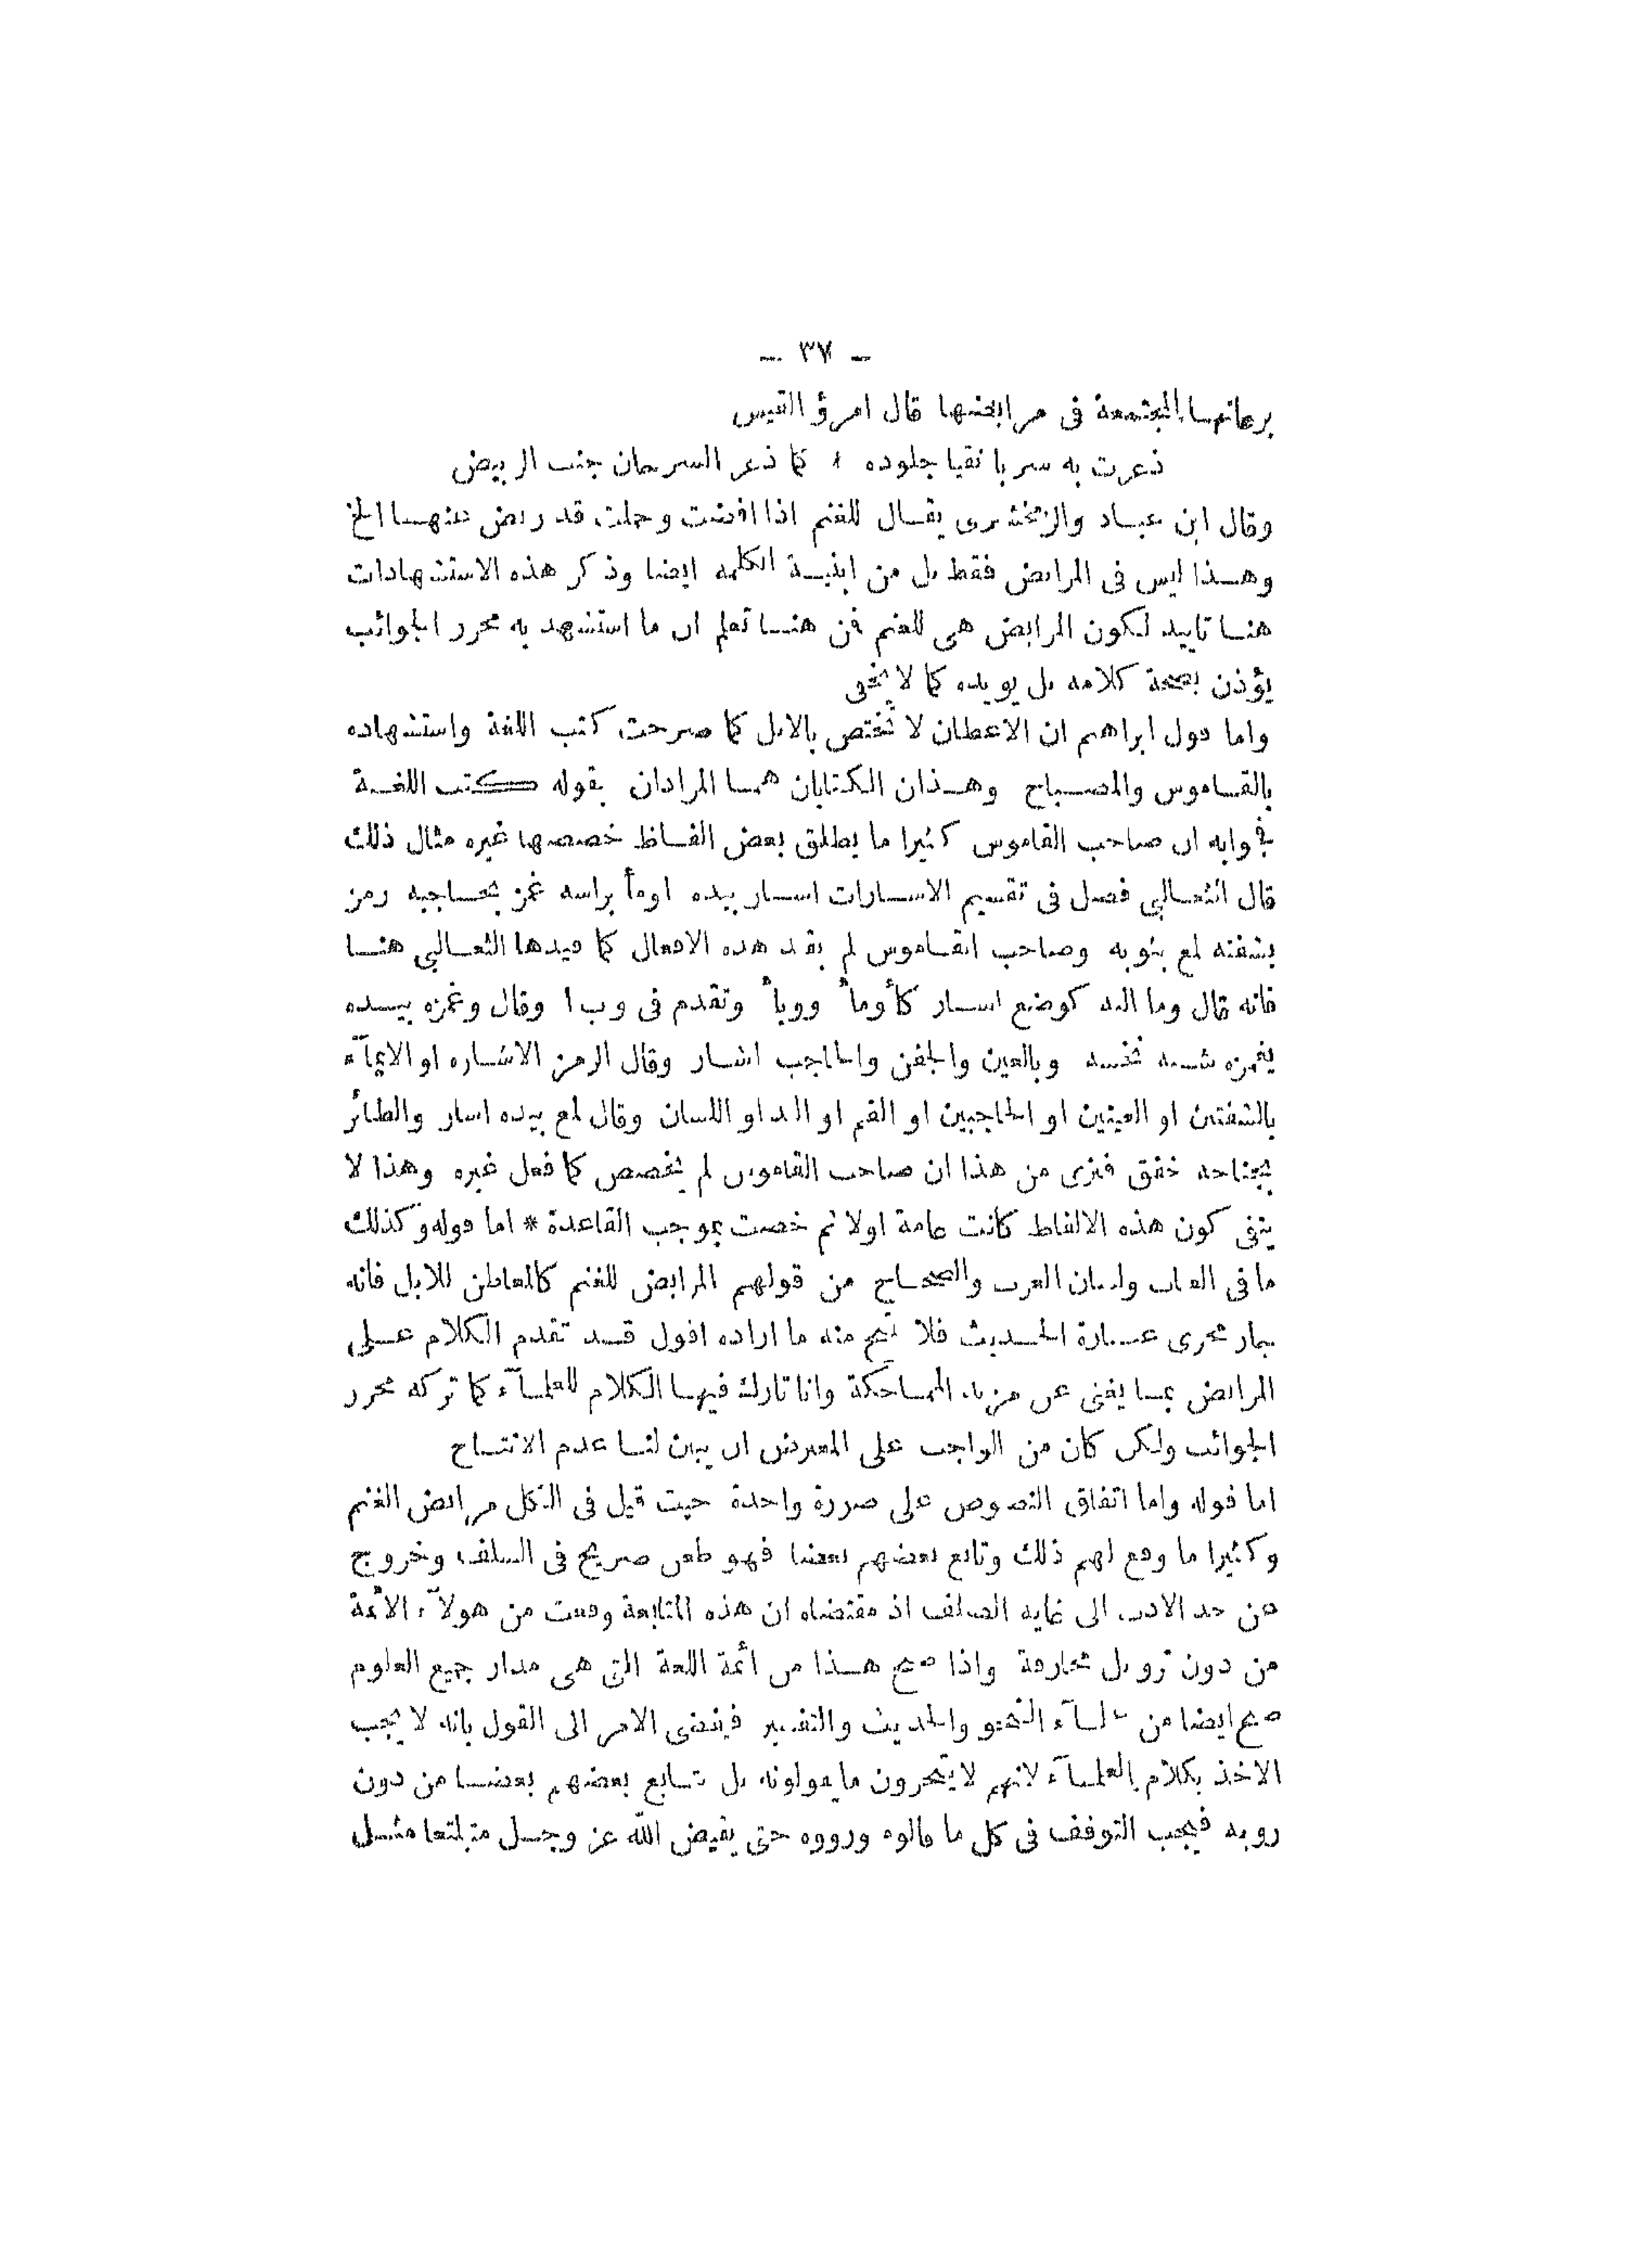 - ٣٧ -
برعاتها المجتمعة فى مرابضها قال امرؤ القيس
ذعرت به سربا نقيا جلوده * كما ذعر السرحان جنب الربيض
وقال ابن عباد والزمخشرى يقال للغنم اذا افضت وحملت قد ربض عنها الخ
وهذا ليس فى المرابض فقط بل من ابنية الكلمه ايضا وذكر هذه الاستشهادات
هنا تاييد لكون المرابض هى للغنم فمن هنا تعلم ان ما استشهد به محرر الجوائب
يؤذن بصحة كلامه بل يويده كما لا يخفى
واما قول ابراهيم ان الاعطان لا تختص بالابل كما صرحت كتب اللغة واستشهاده
بالقاموس والمصباح وهذان الكتابان هما المرادان بقوله كتب اللغة
فجوابه ان صاحب القاموس كثيرا ما يطلق بعض الفاظ خصصها غيره مثال ذلك
قال الثعالبى فصل فى تقسيم الاشارات اشار بيده اومأ براسه غمز بحاجبه رمز
بشفته لمع بثوبه وصاحب القاموس لم يقيد هذه الافعال كما قيدها الثعالبى هنا
فانه قال وما اليه كوضع اشار كأومأ ووبأ وتقدم فى وب ا وقال وغمزه بيده
يغمزه شبه نخسه وبالعين والجفن والحاجب اشار وقال الرمز الاشاره او الايمآء
بالشفتين او العينين او الحاجبين او الفم او اليد او اللسان وقال لمع بيده اشار والطائر
بجناحه خفق فترى من هذا ان صاحب القاموس لم يخصص كما فعل غيره وهذا لا
ينفى كون هذه الالفاظ كانت عامة اولا ثم خصت بموجب القاعدة * اما قوله وكذلك
ما فى العباب ولسان العرب والصحاح من قولهم المرابض للغنم كالمعاطن للابل فانه
جار مجرى عبارة الحديث فلا ينتج منه ما اراده اقول قد تقدم الكلام على
المرابض بما يغنى عن مزيد المماحكة وانا تارك فيها الكلام للعلمآء كما تركه محرر
الجوائب ولكن كان من الواجب على المعترض ان يبين لنا عدم الانتاج
اما قوله واما اتفاق النصوص على صورة واحدة حيث قيل فى الكل مرابض الغنم
وكثيرا ما وقع لهم ذلك وتابع بعضهم بعضا فهو طعن صريح فى السلف وخروج
عن حد الادب الى غاية الصلف اذ مقتضاه ان هذه المتابعة وقعت من هولآء الائمة
من دون ترو بل مجازفة واذا صح هذا من أئمة اللغة التى هى مدار جميع العلوم
صح ايضا من علمآء النحو والحديث والتفسير فيفضى الامر الى القول بانه لا يجب
الاخذ بكلام العلمآء لانهم لا يتحرون ما يقولونه بل تابع بعضهم بعضا من دون
رويه فيجب التوقف فى كل ما قالوه ورووه حتى يقيض الله عز وجل متبلتعا مثل